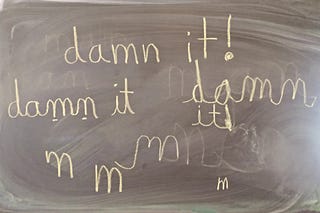 damn it!
damn it
damn
it!
m
m
m